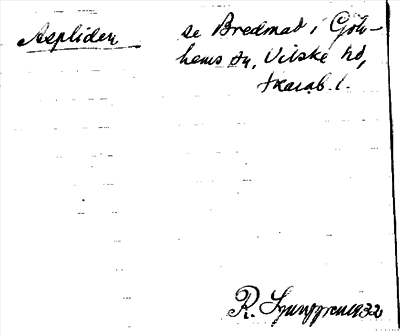 Aspliden se Bredmad i Göte-
hems sn, Vilske hd,
Skarab. l.
R. Ljunggren 1932